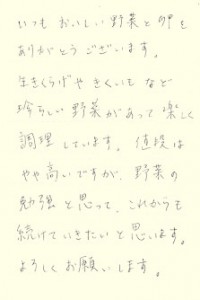 いつも おいしい 野菜と卵を
ありがとう ございます。
生きくらげや きくいも など
珍しい 野菜があって 楽しく
調理しています。値段は
やや高いですが、野菜の
勉強と思って、これからも
続けていきたいと思います。
よろしく お願いします。